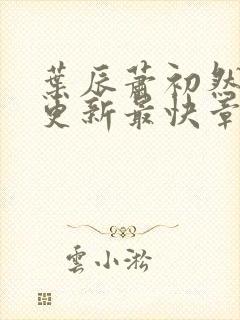 葉辰蕭初然
更新最快章
雲小淞